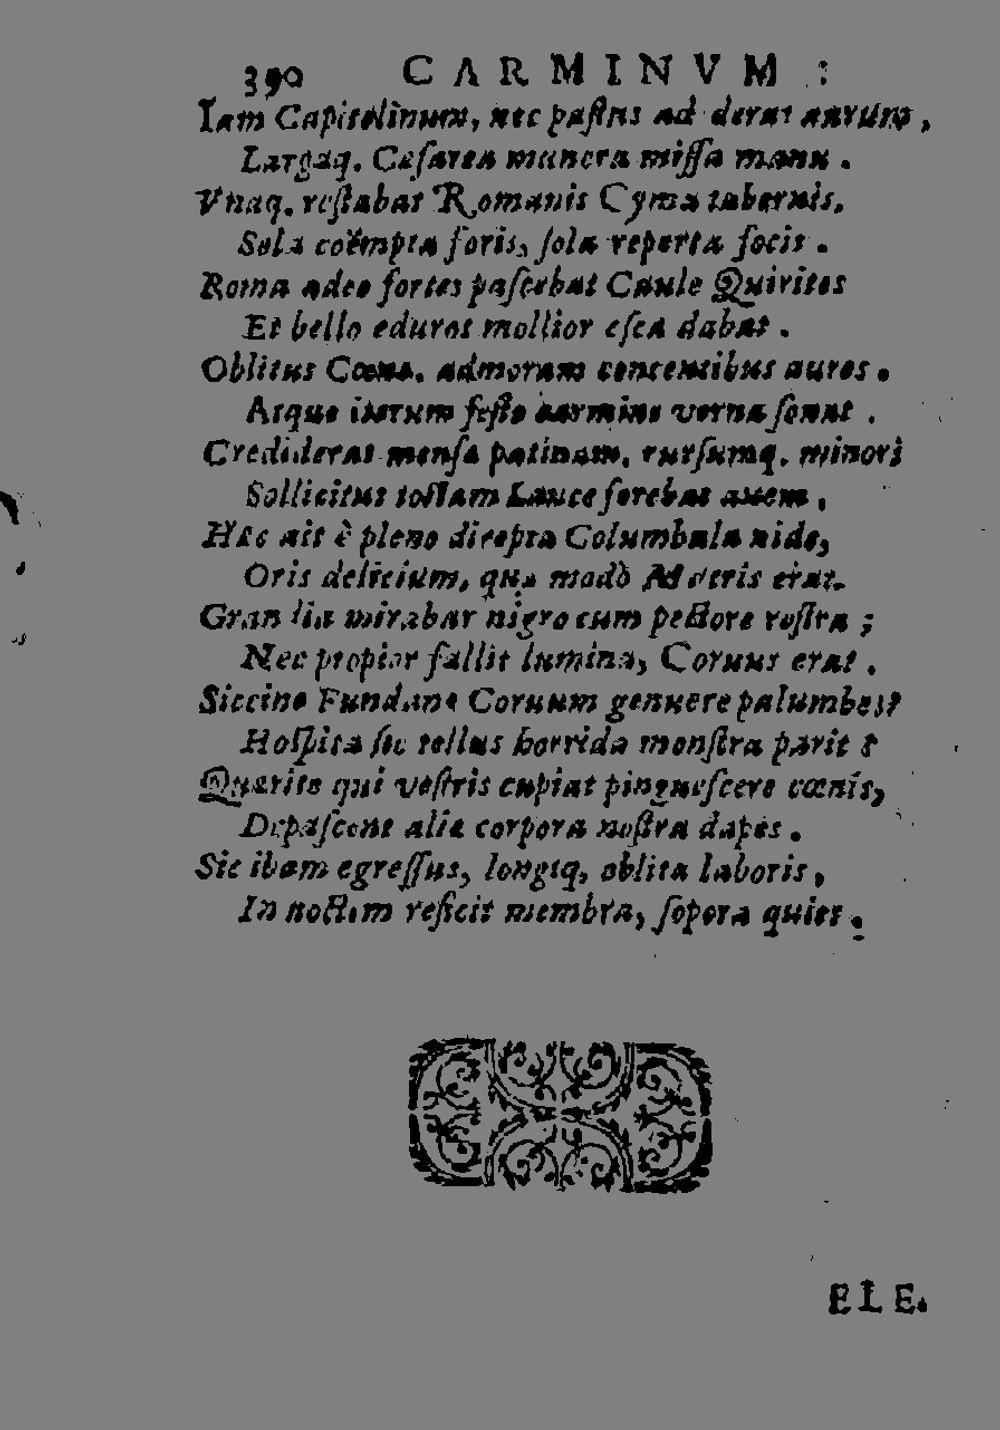 390 CARMINVM :
Iam Capitolinum, nec pastus ad derat aurum,
Largaq. Cæsarea munera missa manu.
Vnaq. restabat Romanis Cyma tabernis,
Sola coëmpta foris, sola reperta focis.
Roma adeo fortes pascebat Caule Quirites
Et bello eduros mollior esca dabat.
Oblitus admoram concentibus aures.
Atque iterum festo carmine verna sonat.
Crediderat mensa patinam, rursumq. minori
Sollicitus tostam Lance ferebat auem,
Hæc ait è pleno direpta Columbula nido,
Oris delicium, quæ modò Matris erat.
Grandia mirabar nigro cum pectore rostra;
Nec propior fallit lumina, Coruus erat.
Siccine Fundane Coruum genuere palumbes?
Hospita sic tellus horrida monstra parit?
Quærite qui vestris cupiat pinguescere cœnis,
Depascent aliæ corpora nostra dapes.
Sic ibam egressus, longiq. oblita laboris,
In noctem reficit membra, sopora quies.
ELE.